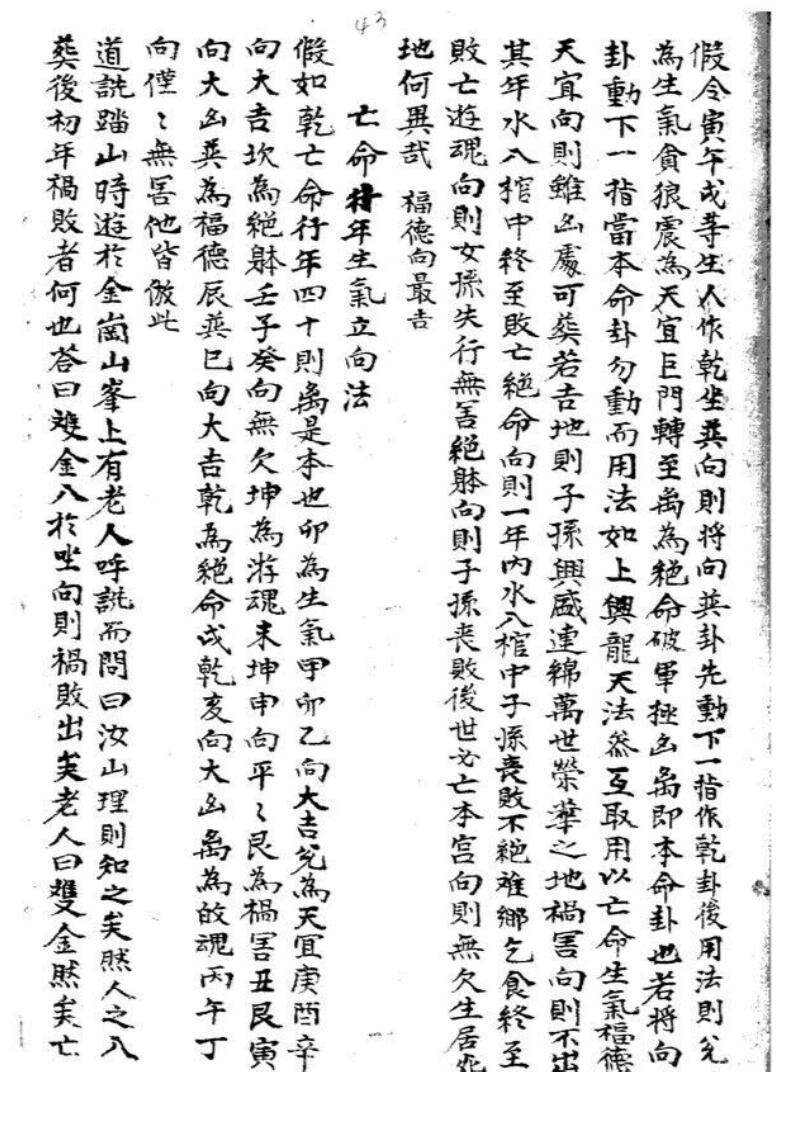 43
假令寅午戌等生人作乾坐巽向則将向巽卦先動下一指作乾卦後用法則兌
為生氣貪狼震為天宜巨門轉至离為絕命破軍極凶离即本命卦也若将向
卦動下一指當本命卦勿動而用法如上與龍天法叅互取用以亡命生氣福德
天宜向則雖凶處可葬若吉地則子孫興盛連綿萬世榮華之地禍害向則不出
其年水入棺中終至敗亡絕命向則一年內水入棺中子孫喪敗不絕难鄉乞食終至
敗亡遊魂向則女孫失行無害絕躰向則子孫丧敗後世必亡本宮向則無欠生居死
地何異哉 福德向最吉
亡命行年生氣立向法
假如乾亡命行年四十則离是本也卯為生氣甲卯乙向大吉兌為天宜庚酉辛
向大吉坎為絕躰壬子癸向無欠坤為游魂未坤申向平〻艮為禍害丑艮寅
向大凶巽為福德辰巽巳向大吉乾為絕命戌乾亥向大凶离為故魂丙午丁
向僅〻無害他皆倣此
道詵踏山時遊於金崗山峯上有老人呼詵而問曰汝山理則知之矣然人之入
葬後初年禍敗者何也荅曰雙金入於坐向則禍敗出矣老人曰雙金然矣亡